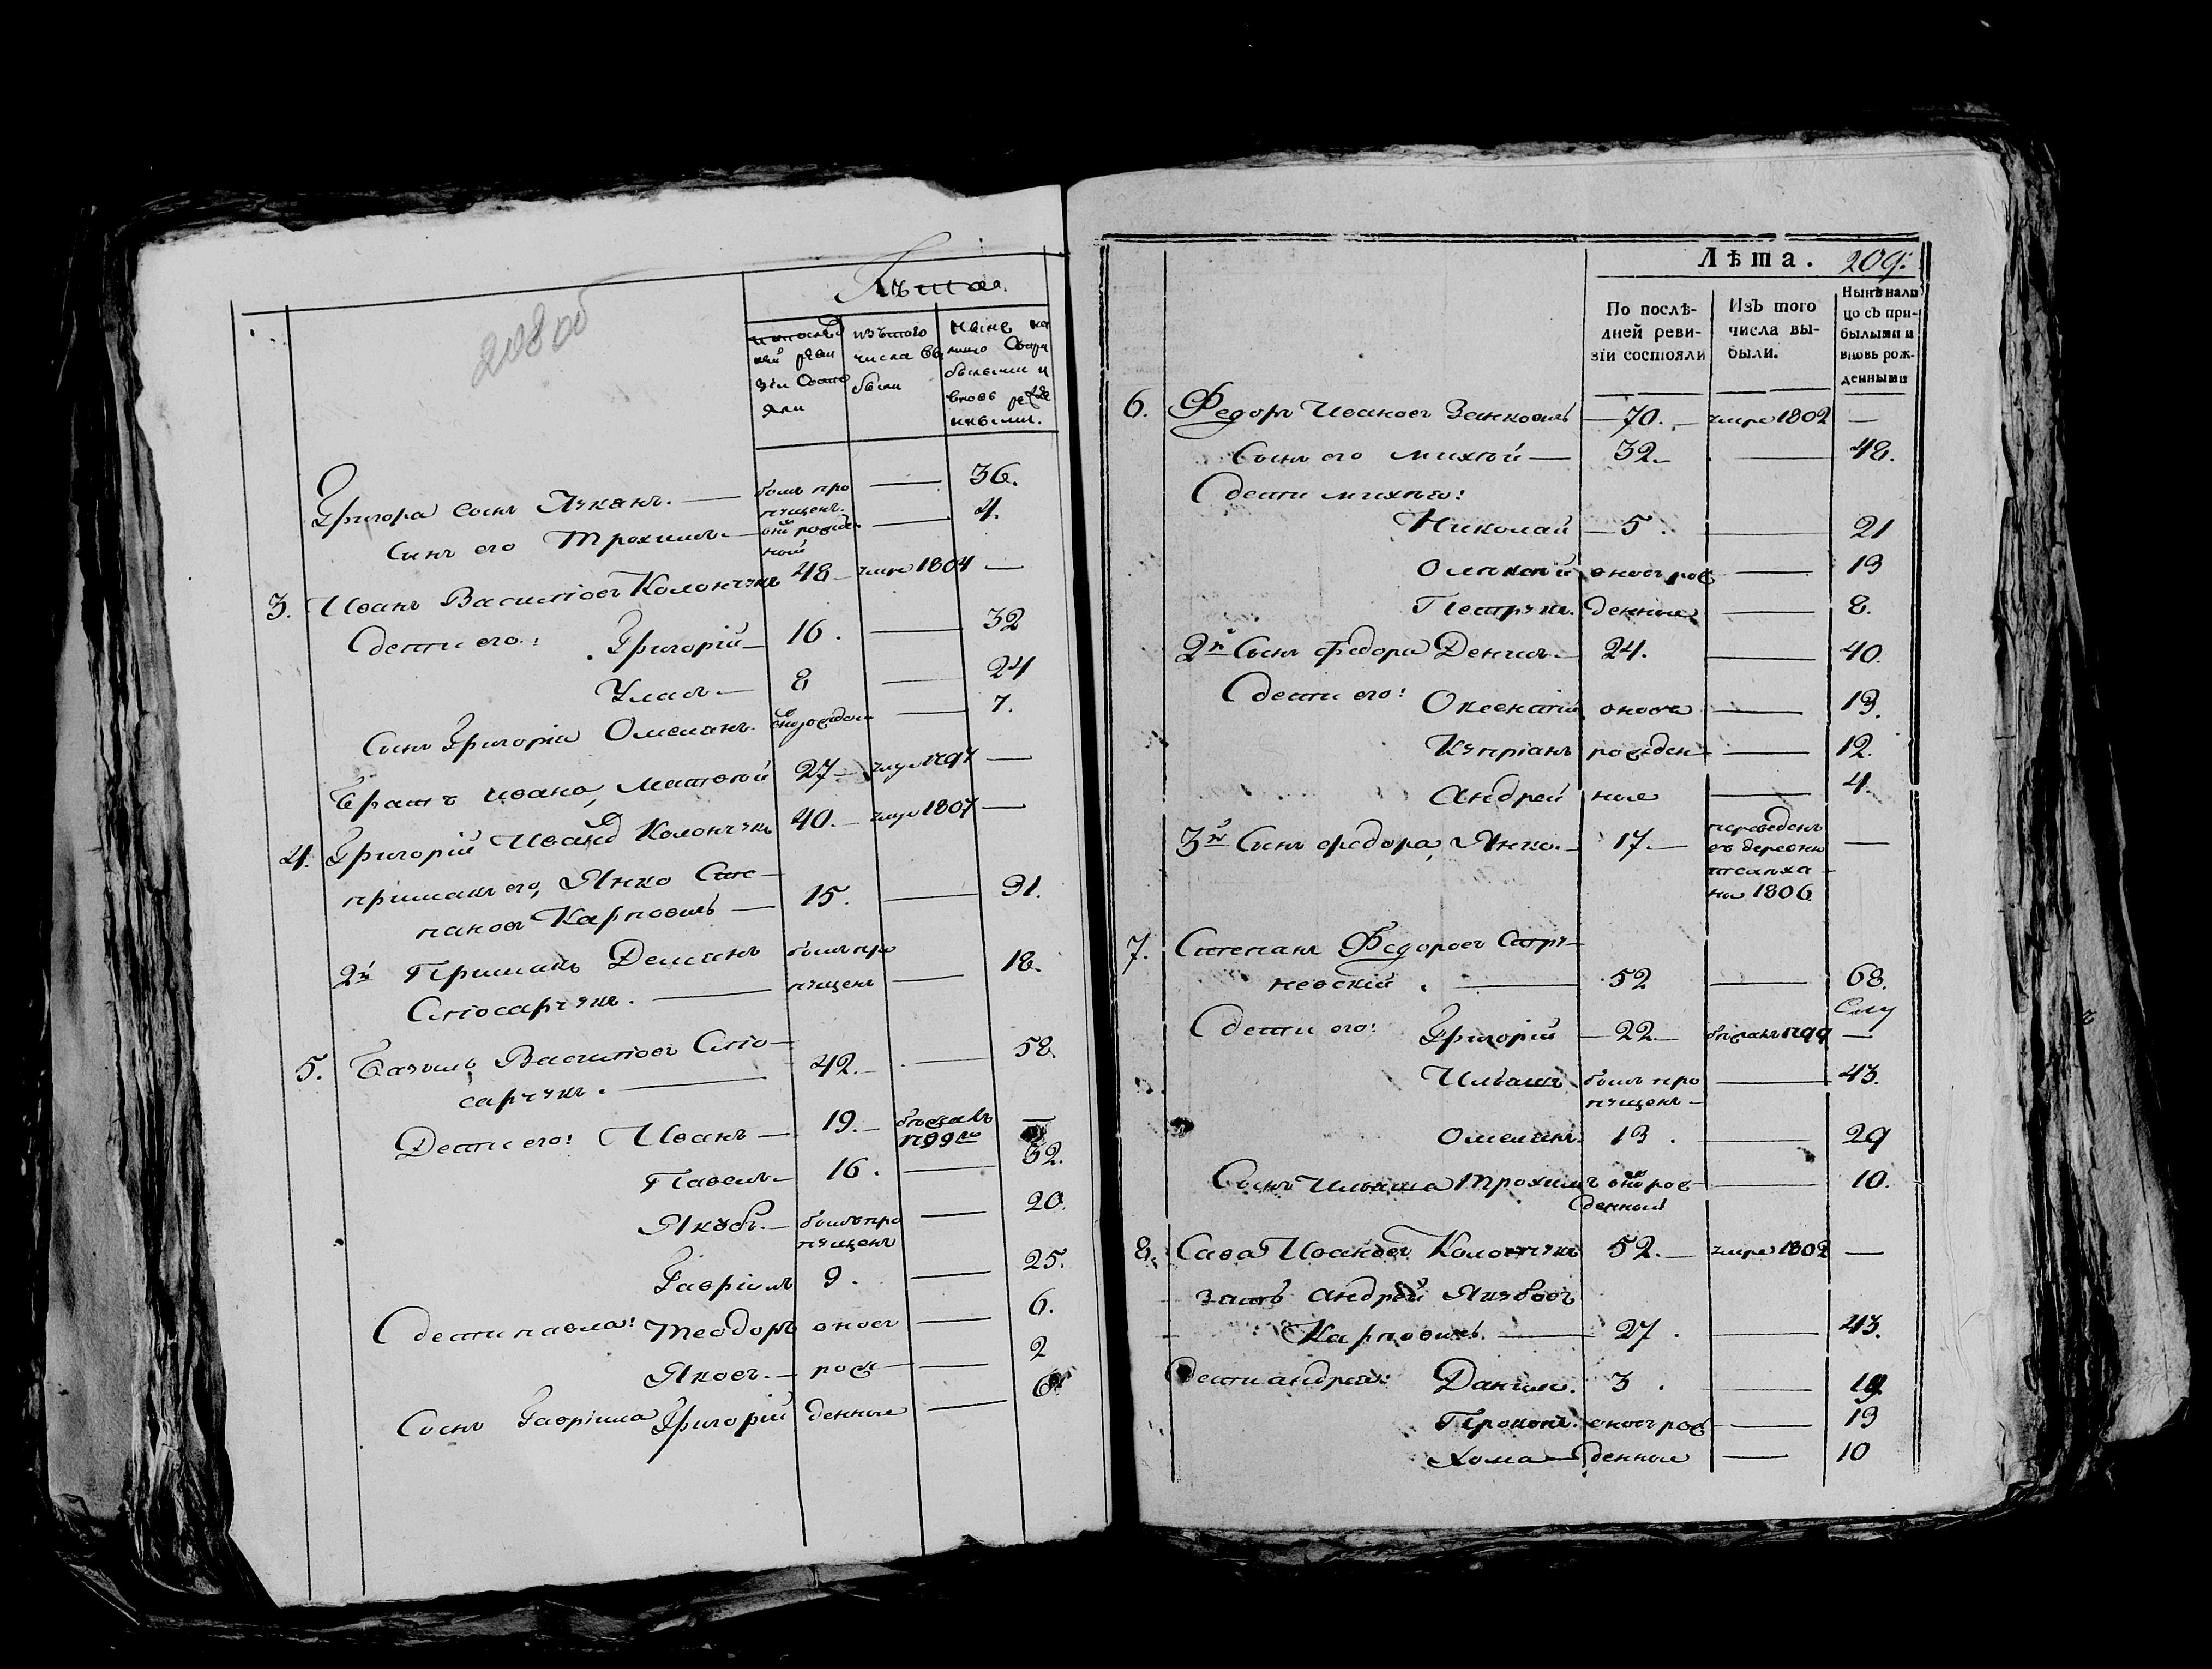 208 об
Лѣта.
по послѣд
ней реви
зіи состо
яли
изътого
числа вы
были
ныне на
лицо Спри
былыми и
вновь рожде
нными.
Григора сынъ Лукянъ. — былъ про
пущенъ. — 36.
Сынъ его Трохимъ. — внй рожден
ной — 4.
3. Иванъ Василіовъ Колончукъ 48 — умре 1804 —
Сдети его: Григорій — 16. — 32
Уласъ — 8 — 24
Сынъ Григорія Омелянъ. внорожден — 7.
Братъ ивана, Матвей 27 — умре 1797 —
4. Григорій Ивановъ Колончукъ 40. — умре 1807 —
примакъ его, Янко Сте-
пановъ Карповичъ — 15. — 31.
2й Примакъ Демянъ былъ про
Слюсарчукъ. — пущенъ — 18.
5. Базыль Василіовъ Слю-
сарчукъ. — 42. — 58.
Дети его: Иванъ — 19. — бежалъ
1799го —
Павелъ — 16. — 32.
Якубъ. — былъ про
пущенъ — 20.
Гавріилъ 9. — 25.
Сдети павла: Теодоръ вновъ — 6.
Яковъ. — рож — 2
Сынъ Гавріила Григорій денные — 6
Лѣта. 209.
По послѣ-
дней реви-
зіи состояли
Изъ того
числа вы-
были.
Нынѣ нали
цо съ при-
былыми и
вновь рож-
денными
6. Федоръ Ивановъ Занковичъ — 70. — умре 1802 —
Сынъ его михей — 32. — 48.
Сдети михея:
Николай — 5. — 21
вновъ рож — 13
Петрукъ. денные — 8.
2й Сынъ федора Денисъ — 24. — 40.
Сдети его: Оксентій вновъ — 13.
Купріянъ рожден — 12.
Андрей ные — 4.
3й Сынъ федора, Янко. — 17. — переведенъ —
въ деревню
на 1806
7. Степанъ Федоровъ Стру-
невскій. — 52 — 68.
Сдети его: Григорій — 22 — бежалъ 1799 —
Ильяшъ былъ про — 43.
пущенъ —
Омелянъ. 13. — 29
Сынъ Ильяша Трохимъ внй рож — 10.
денной
8. Сава Ивановъ Колончукъ 52. — умре 1802 —
зять андрей Якубовъ
Карповичъ. — 27. — 43.
Сдети андрея: Данило. 3. — 19
Прокопъ. вновъ рож — 13
Хома — денные — 10